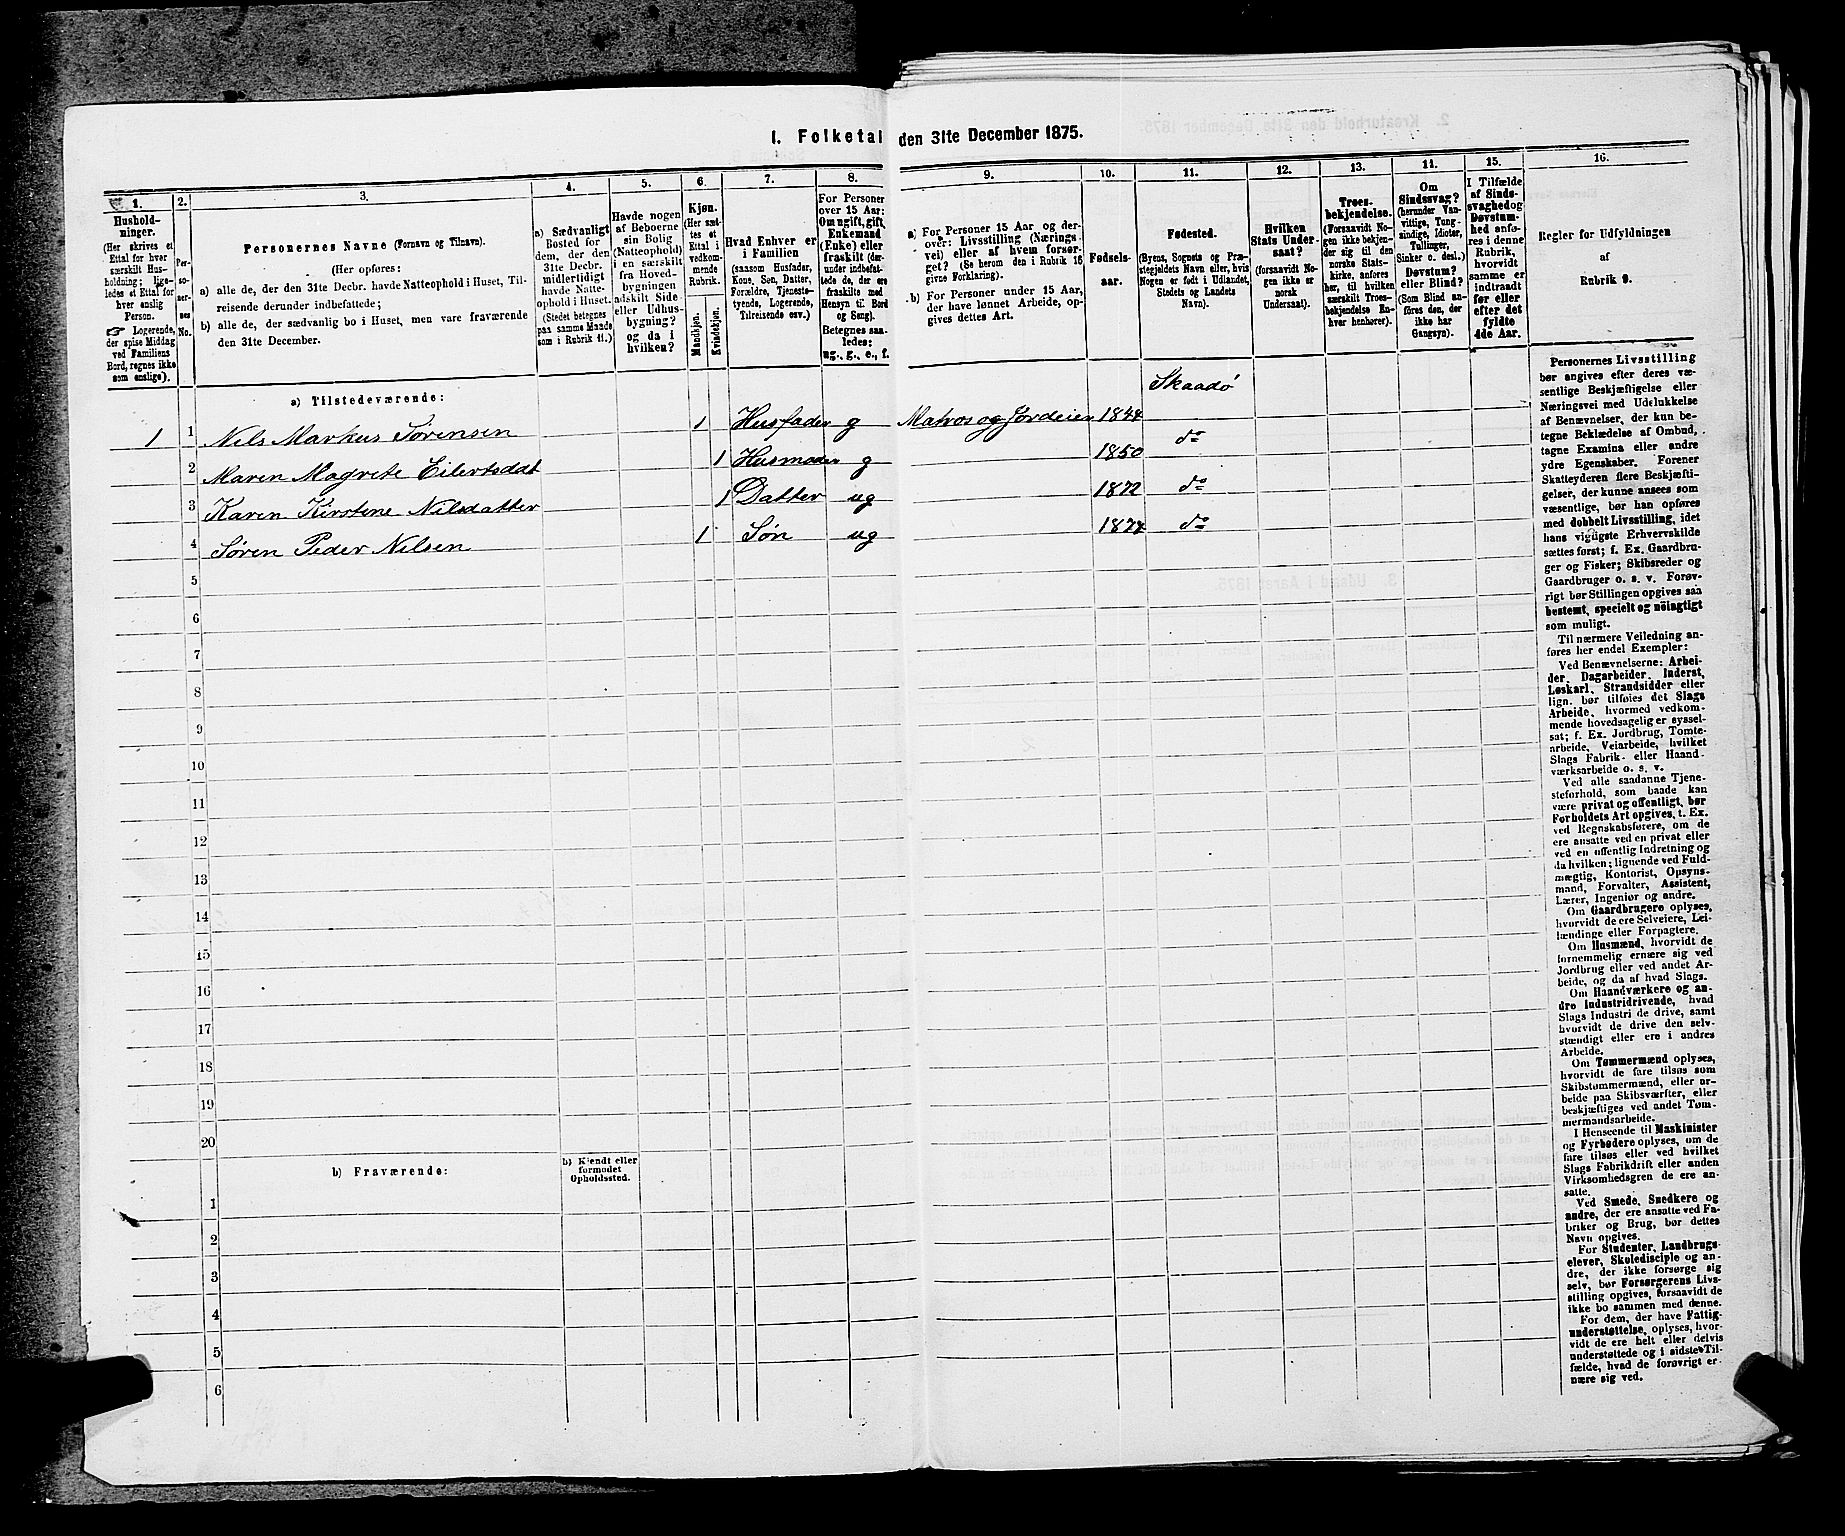 I. Folketal den 31te December 1875.
1.
Hushold-
ninger.
(Her skrives et
Ettal for hver
særskilt Hus-
holdning; lige-
ledes et Ettal for
hver enslig
Person.
☞ Logerende,
der spise Middag
ved Familiens
Bord, regnes ikke
som enslige).
2.
Per-
so-
ner-
nes
No.
3.
Personernes Navne (Fornavn og Tilnavn).
(Her opføres:
a) alle de, der den 31te Decbr. havde Natteophold i Huset, Til-
reisende derunder indbefattede;
b) alle de, der sædvanlig bo i Huset, men vare fraværende
den 31te December.
4.
a) Sædvanligt
Bosted for
dem, der den
31te Decbr.
midlertidigt
havde Natte-
ophold i Huset.
(Stedet betegnes
paa samme Maade
som i Rubrik 11.)
5.
Havde nogen
af Beboerne
sin Bolig
(Natteophold)
i en særskilt
fra Hoved-
bygningen
adskilt Side-
eller Udhus-
bygning?
og da i
hvilken?
6.
Kjøn.
(Her sæt-
tes et
Ettal i
vedkom-
mende
Rubrik.
Mandkjøn.
Kvindekjøn.
7.
Hvad Enhver er
i Familien
(saasom Husfader,
Kone, Søn, Datter,
Forældre, Tjeneste-
tyende, Logerende,
Tilreisende osv.)
8.
For Personer
over 15 Aar:
Om ugift, gift,
Enkemand
(Enke) eller
fraskilt (der-
under indbefat-
tede de, der ere
fraskilte med
Hensyn til Bord
og Seng).
Betegnes saa-
ledes:
ug., g., e., f.
9.
a) For Personer 15 Aar og der-
over: Livsstilling (Nærings-
vei) eller af hvem forsør-
get? (Se herom den i Rubrik 16
givne Forklaring).
b) For Personer under 15 Aar,
der have lønnet Arbeide, op-
gives dettes Art.
10.
Fødsels-
aar.
11.
Fødested.
(Byens, Sognets og Præ-
stegjeldets Navn eller, hvis
Nogen er født i Udlandet,
Stedets og Landets
Navn).
12.
Hvilken
Stats Under-
saat?
(forsaavidt No-
gen ikke er
norsk
Undersaat).
13.
Troes-
bekjendelse.
(Forsaavidt No-
gen ikke bekjen-
der sig til den
norske Stats-
kirke, anføres
her, til hvilken
særskilt Troes-
bekjendelse En-
hver henhører).
14.
Om
Sindssvag?
(herunder Van-
vittige, Tung-
sindige, Idioter,
Tullinger,
Sinker o. desl.)
Døvstum?
eller Blind?
(Som Blind an-
føres den, der
ikke har
Gangsyn).
15.
I Tilfælde
af Sinds-
svaghed og
Døvstum-
hed anfø-
res i denne
Rubrik,
hvorvidt
samme er
indtraadt
før eller
efter det
fyldte
4de Aar.
16.
Regler for Udfyldningen
af
Rubrik 9.
a) Tilstedeværende:
Skaadø
1 1 Nils Markus Sørensen 1 Husfader g Matros og Jordeier 1844
2 Maren Magrete Eilertsdat 1 Husmoder g 1850 do
3 Karen Kirstine Nilsdatter 1 Datter ug 1872 do
4 Søren Peder Nilsen 1 Søn ug 1874 do
5
6
7
8
9
10
11
12
13
14
15
16
17
18
19
20
b) Fraværende:
b) Kjendt eller
formodet
Opholdssted.
1
2
3
4
5
6
Personernes Livsstilling
bør angives efter deres væ-
sentlige Beskjæftigelse eller
Næringsvei med Udelukkelse
af Benævnelser, der kun be-
tegne Beklædelse af Ombud,
tagne Examina eller andre
ydre Egenskaber. Forener
Skatteyderen flere Beskjæfti-
gelser, der kunne ansees som
væsentlige, bør han opføres
med dobbelt Livsstilling, idet
hans vigtigste Erhvervskilde
sættes først; f. Ex. Gaardbru-
ger og Fisker; Skibsreder og
Gaardbruger o. s. v. Forøv-
rigt bør Stillingen opgives saa
bestemt, specielt og nöiagtigt
som muligt.
Til nærmere Veiledning an-
føres her endel Exempler:
Ved Benævnelserne: Arbei-
der, Dagarbeider, Inderst,
Løskarl, Strandsidder eller
lign. bør tilføies det Slags
Arbeide, hvormed vedkom-
mende hovedsagelig er syssel-
sat; f. Ex. Jordbrug, Tomte-
arbeide, Veiarbeide, hvilket
Slags Fabrik- eller Haand-
værksarbeide o. s. v.
Ved alle saadanne Tjene-
steforhold, som baade kan
være privat og offentligt, bør
Forholdets Art opgives, t. Ex.
ved Regnskabsførere, om de
ere ansatte ved en privat eller
ved en offentlig Indretning og
da hvilken; lignende ved Fuld-
mægtig, Kontorist, Opsyns-
mand, Forvalter, Assistent,
Lærer, Ingeniør og andre.
Om Gaardbrugere oplyses,
hvorvidt de ere Selveiere, Lei-
lændinge eller Forpagtere.
Om Husmænd, hvorvidt de
fornemmelig ernære sig ved
Jordbrug eller ved andet Ar-
beide, og da af hvad Slags.
Om Haandværkere og an-
dre Industridrivende, hvad
Slags Industri de drive, samt
hvorvidt de drive den selv-
stændigt eller ere i andres
Arbeide.
Om Tømmermænd oplyses,
hvorvidt de fare tilsøs som
Skibstømmermænd, eller ar-
beide paa Skibsværfter, eller
beskjæftiges ved andet Tøm-
mermandsarbeide.
I Henseende til Maskinister
og Fyrbødere oplyses, om de
fare tilsøs eller ved hvilket
Slags Fabrikdrift eller anden
Virksomhedsgren de ere an-
satte.
Ved Smede, Snedkere og
andre, der ere ansatte ved Fa-
briker og Brug, bør dettes
Navn opgives.
For Studenter, Landbrugs-
elever, Skoledisciple og an-
dre, der ikke forsørge sig
selv, bør Forsørgerens Livs-
stilling opgives, forsaavidt de
ikke bo sammen med denne.
For dem, der have Fattig-
understøttelse, oplyses, hvor-
vidt de ere helt eller delvis
understøttede og i sidste Til-
fælde, hvad de forøvrigt er-
nære sig ved.